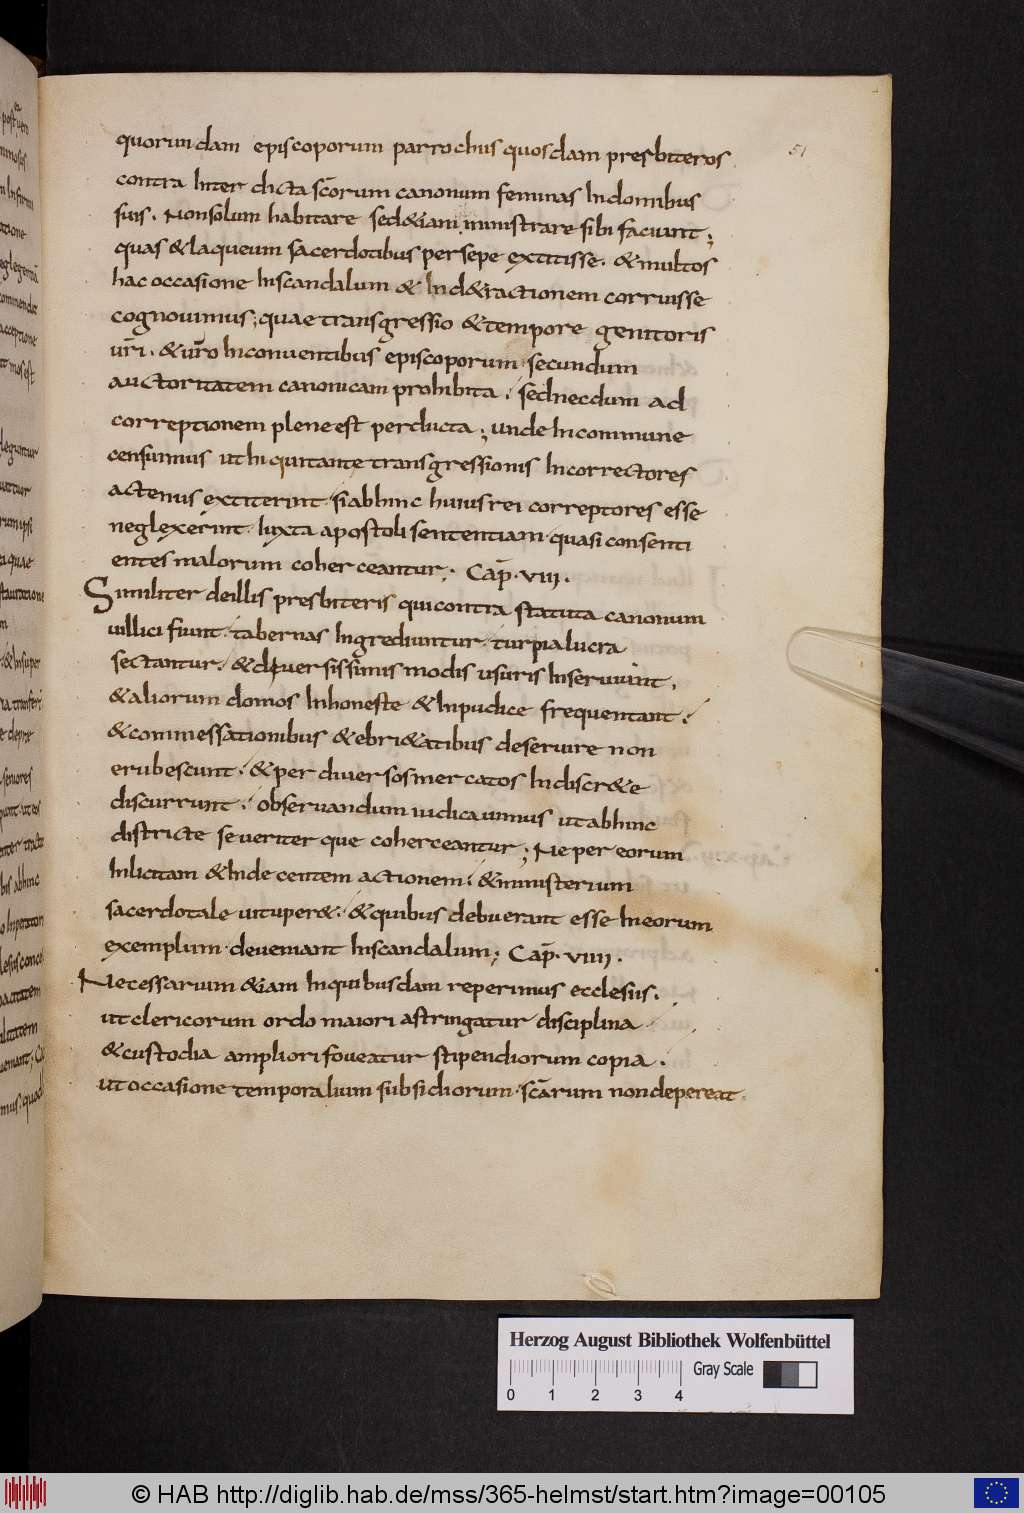 51
quorundam episcoporum parrochus quosdam presbiteros
contra Inter dicta scōrum canonum feminas Indomibus
suis. Nonsolum habitare sed&iam ministrare sibi faciunt;
quas &laqueum sacerdotibus persepe extitisse. &multos
hac occasione Inscandalum & Ind&ractionem corruisse
cognovimus; quae transgressio &tempore genitoris
ur̄i. &ur̄o Inconventibus episcoporum secundum
auctoritatem canonicam prohibita. sednecdum ad
correptionem pleneest perducta; unde Incommune
censuimus uthi quitante transgressionis Incorrectores
actenus extiterint. siabhinc huiusrei correptores esse
neglexerint. Iuxta apostoli sententiam quasi consenti
entes malorum coherceantur; Cap̄. viii.
Similiter deillis presbiteris quicontra statuta canonum
uillici fiunt. tabernas Ingrediuntur. turpialucra
sectantur. &diversissimis modis usuris Inserviunt.
&aliorum domos Inhoneste &Inpudice frequentant.
&commessationibus &ebri&atibus deservire non
erubescunt. &per diversosmercatos Indiscr&e
discurrunt. observandum iudicavimus utabhinc
districte severiter que coherceantur; Ne per eorum
Inlicitam &Indecentem actionem. &ministerium
sacerdotale vituper&. &quibus debuerant esse Ineorum
exemplum. deveniant Inscandalum; Cap̄. viiii.
Necessarium &iam Inquibusdam reperimus ecclesiis.
utclericorum ordo maiori astringatur disciplina
&custodia ampliori foveatur stipendiorum copia.
utoccasione temporalium subsidiorum. scārum nondepereat.
Herzog August Bibliothek Wolfenbüttel
Gray Scale
0 1 2 3 4
© HAB http://diglib.hab.de/mss/365-helmst/start.htm?image=00105